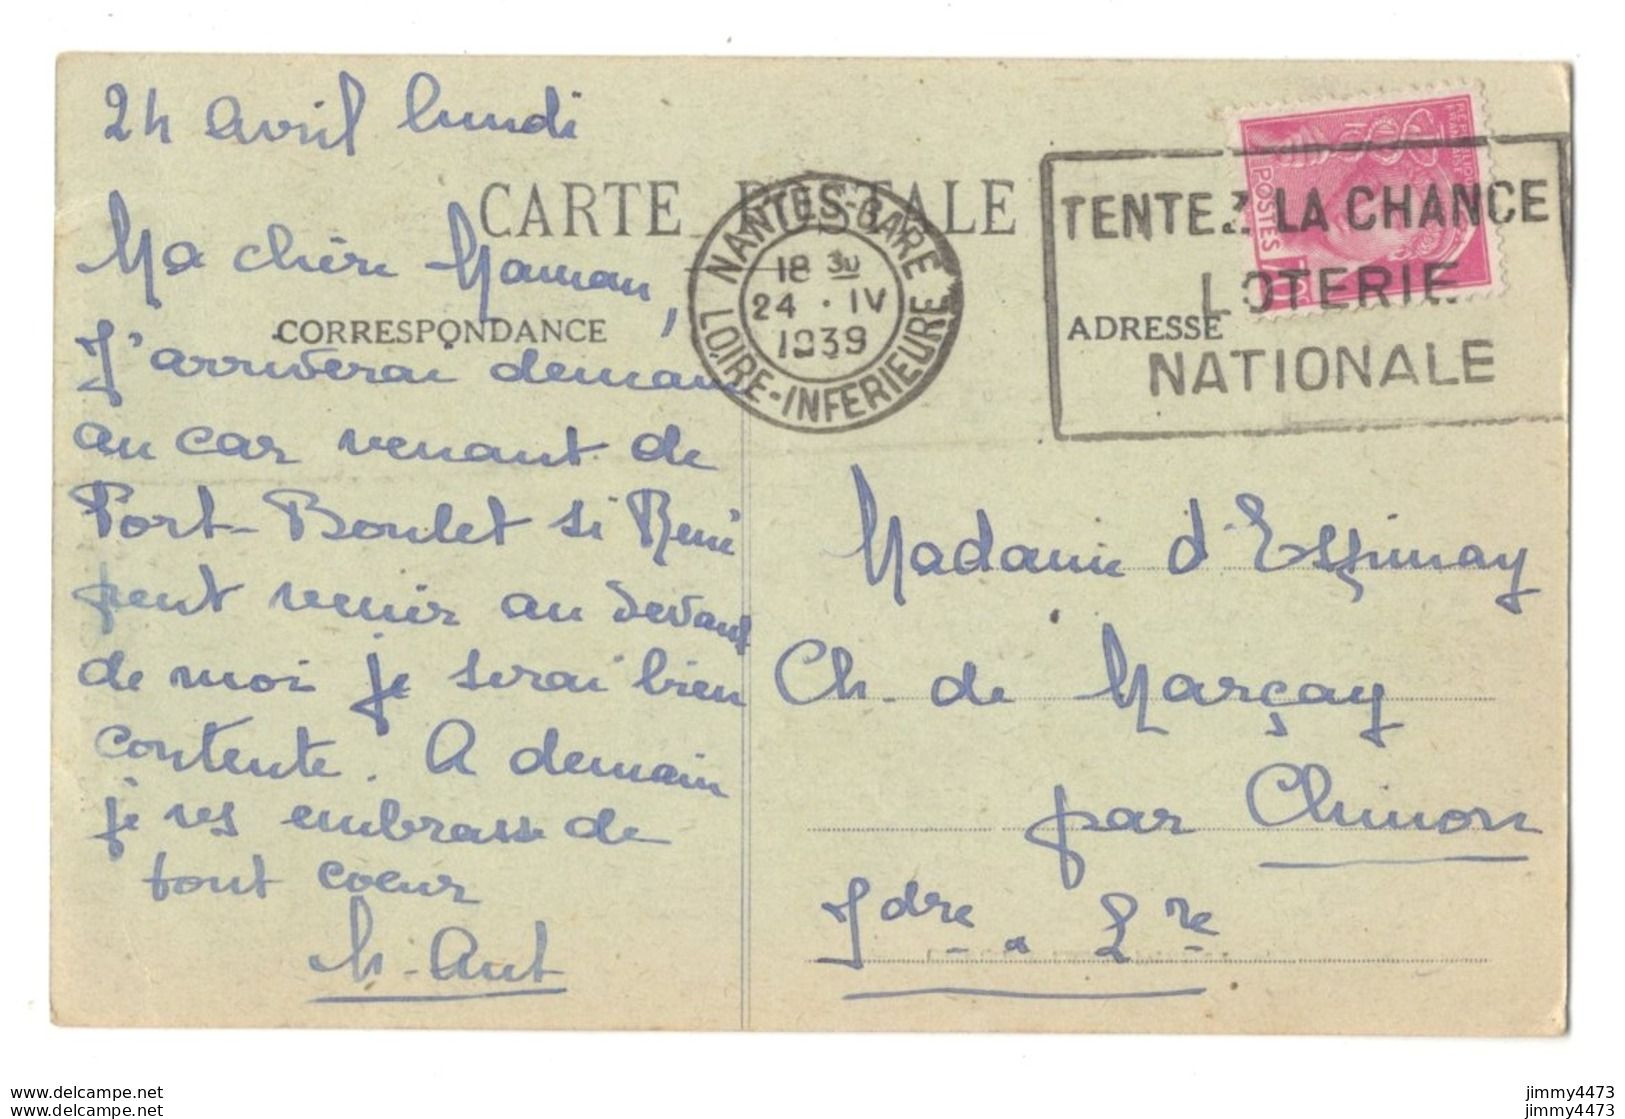 24 avril lundi
CARTE POSTALE
Ma chère Maman,
CORRESPONDANCE
J'arriverai demain
au car venant de
Port-Boulet si René
peut venir au devant
de moi je serai bien
contente. A demain
je vs embrasse de
tout coeur
M-Ant
NANTES-GARE
18 30
24 · IV
1939
LOIRE-INFERIEURE
TENTEZ LA CHANCE
LOTERIE
NATIONALE
POSTES
ADRESSE
Madame d'Espinay
Ch. de Marçay
par Chinon
Indre & Lre
www.delcampe.net
www.delcampe.net
jimmy4473
jimmy4473